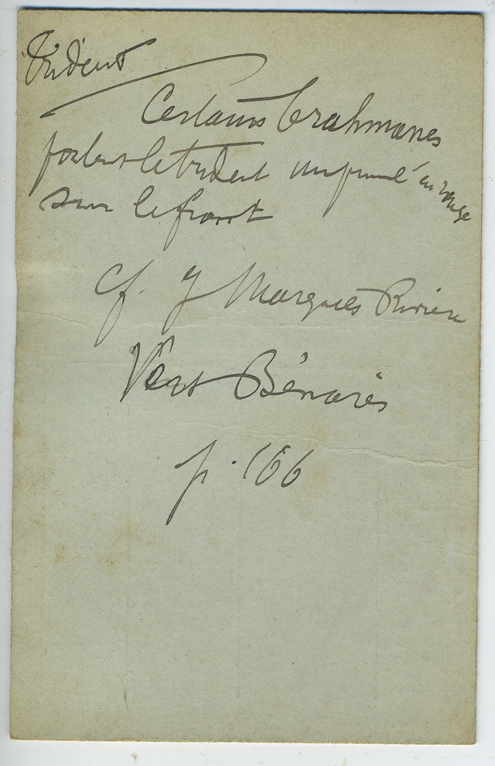 Trident
Certains brahmanes
portent le trident imprimé en rouge
sur le front
cf. J Marquès Rivière
Vers Bénarès
p. 166